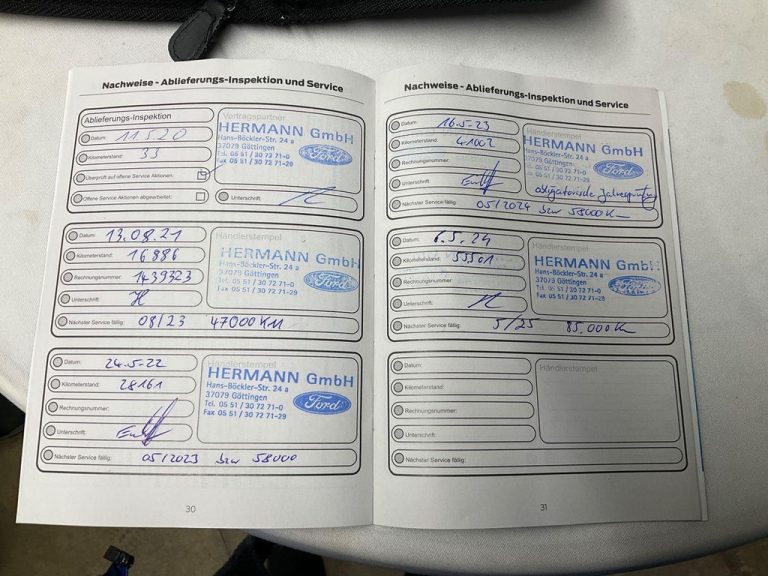 Nachweise - Ablieferungs-Inspektion und Service
Ablieferungs-Inspektion
Datum: 11.5.20
Kilometerstand: 33
Überprüft auf offene Service Aktionen:
Offene Service Aktionen abgearbeitet:
Vertragspartner
HERMANN GmbH
Hans-Böckler-Str. 24 a
37079 Göttingen
Tel. 05 51 / 30 72 71-0
Fax 05 51 / 30 72 71-29
Ford
Unterschrift:
Datum: 13.08.21
Kilometerstand: 16886
Rechnungsnummer: 1439323
Unterschrift:
Nächster Service fällig: 08/23 47000 KM
Händlerstempel
HERMANN GmbH
Hans-Böckler-Str. 24 a
37079 Göttingen
Tel. 05 51 / 30 72 71-0
Fax 05 51 / 30 72 71-29
Ford
Datum: 24.5.22
Kilometerstand: 28161
Rechnungsnummer:
Unterschrift:
Nächster Service fällig: 05/2023 bzw 58000
Händlerstempel
HERMANN GmbH
Hans-Böckler-Str. 24 a
37079 Göttingen
Tel. 05 51 / 30 72 71-0
Fax 05 51 / 30 72 71-29
Ford
30
Nachweise - Ablieferungs-Inspektion und Service
Datum: 16.5.23
Kilometerstand: 41002
Rechnungsnummer:
Unterschrift:
Nächster Service fällig: 05/2024 bzw 58000 Km
Händlerstempel
HERMANN GmbH
Hans-Böckler-Str. 24 a
37079 Göttingen
Tel. 05 51 / 30 72 71-0
Fax 05 51 / 30 72 71-29
Ford
obligatorische
Datum: 6.5.24
Kilometerstand: 55501
Rechnungsnummer:
Unterschrift:
Nächster Service fällig: 5/25 85.000 Km
Händlerstempel
HERMANN GmbH
Hans-Böckler-Str. 24 a
37079 Göttingen
Tel. 05 51 / 30 72 71-0
Fax 05 51 / 30 72 71-29
Ford
Datum:
Kilometerstand:
Rechnungsnummer:
Unterschrift:
Nächster Service fällig:
Händlerstempel
31